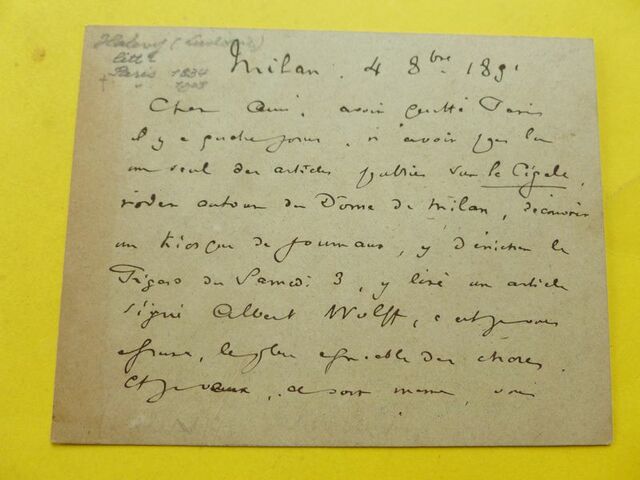 Halevy (Ludovic)
litt
Paris 1834
" 1908
Milan. 4 8bre 1891
Cher ami, avoir quitté Paris
il y a quelques jours, n'avoir pas lu
un seul des articles publiés sur la Cigale,
rôder autour du Dôme de Milan, découvrir
un Kiosque de journaux, y dénicher le
Figaro du Samedi 3, y lire un article
signé Albert Wolff, c'est je vous
assure, la plus agréable des choses.
Et je veux, ce soir même, vous